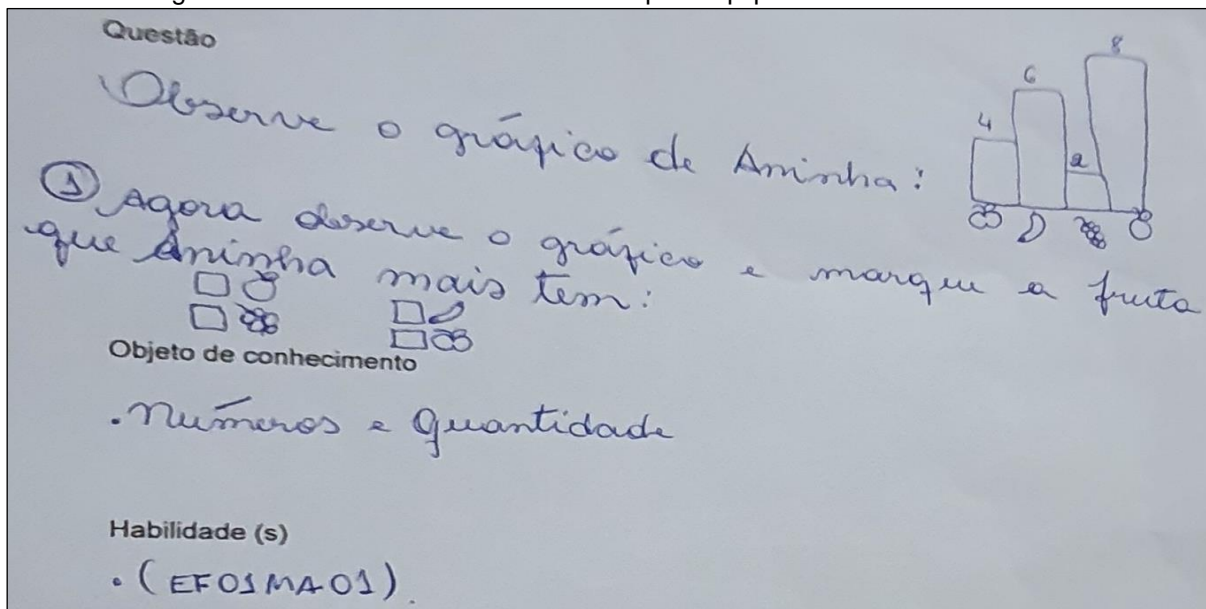 Questão
Observe o gráfico de Aninha:
4 6 2 8
① Agora observe o gráfico e marque a fruta
que Aninha mais tem:
Objeto de conhecimento
• Números e Quantidade
Habilidade (s)
• (EF01MA01).